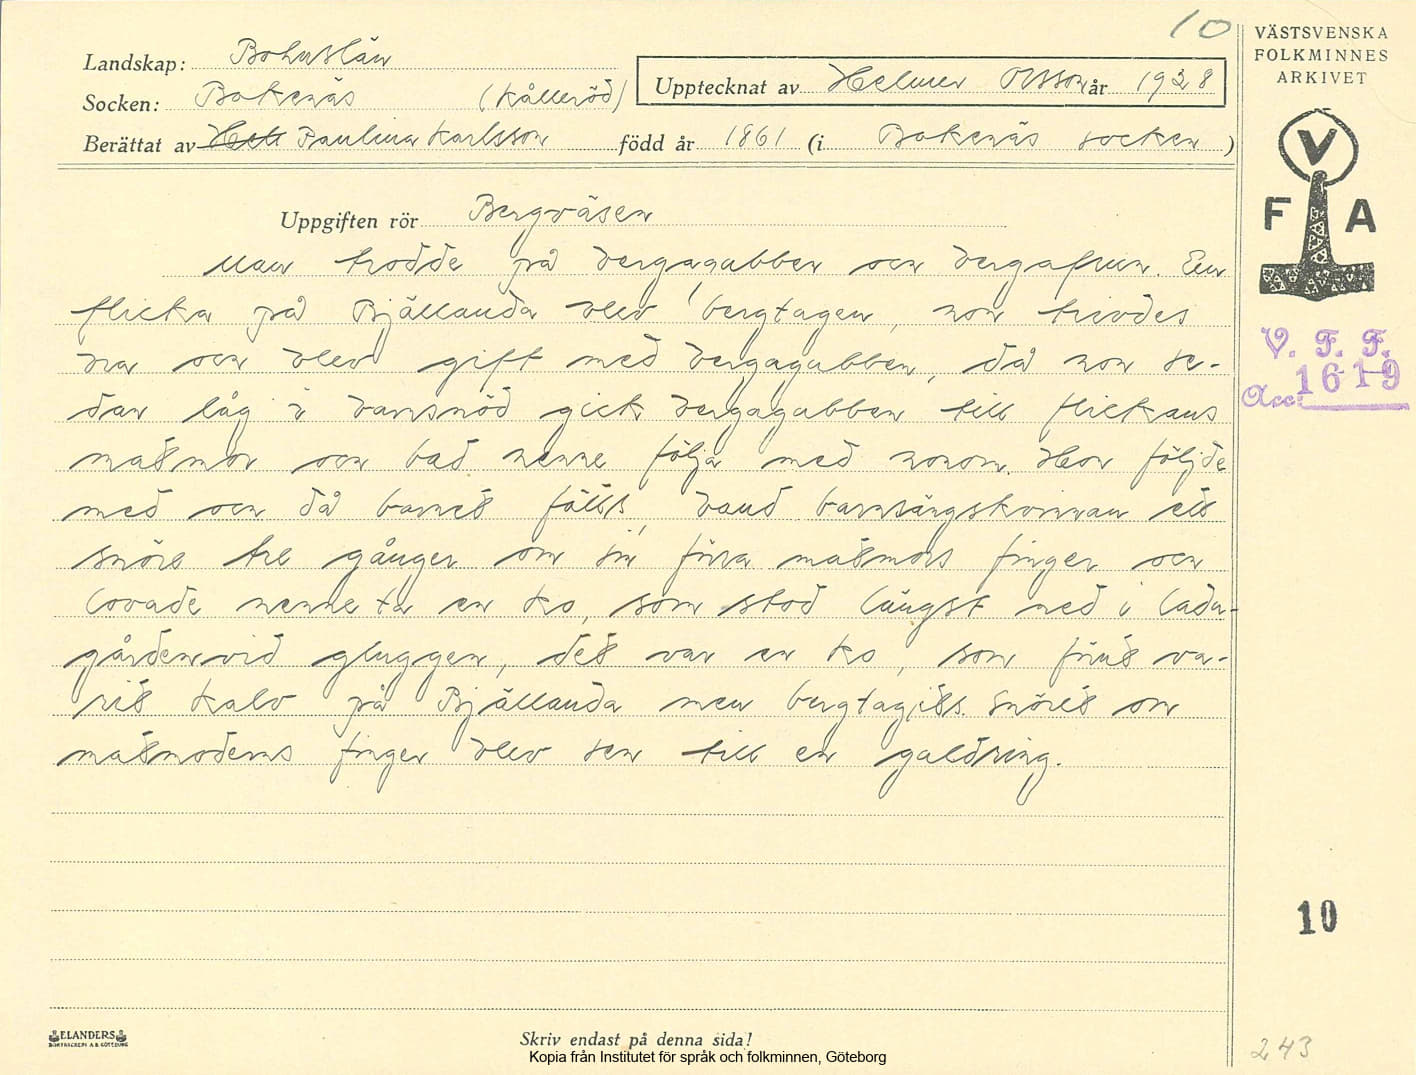 10
Landskap: Bohuslän
Socken: Bokenäs (Kålleröd)
Upptecknat av Helmer Olsson år 1938
Berättat av Paulina Karlsson född år 1861 (i Bokenäs socken)
VÄSTSVENSKA
FOLKMINNES
ARKIVET
V
F A
V. F. F.
Acc: 1619
Uppgiften rör Bergväsen
Man trodde på bergagubben och bergafrun. En
flicka på Bjällanda blev bergtagen, hon trivdes
bra och blev gift med bergagubben, då hon se-
dan låg i barnsnöd gick bergagubben till flickans
matmor och bad henne följa med honom. Hon följde
med och då barnet fötts, band barnsängskvinnan ett
snöre tre gånger om sin förra matmors finger och
lovade henne ta en ko, som stod längst ned i ladu-
gården vid gluggen, det var en ko, som förut va-
rit kalv på Bjällanda men bergtagits. Snöret om
matmoderns finger blev sen till en guldring.
10
ELANDERS
BOKTRYCKERI A.B. GÖTEBORG
Skriv endast på denna sida!
Kopia från Institutet för språk och folkminnen, Göteborg
243